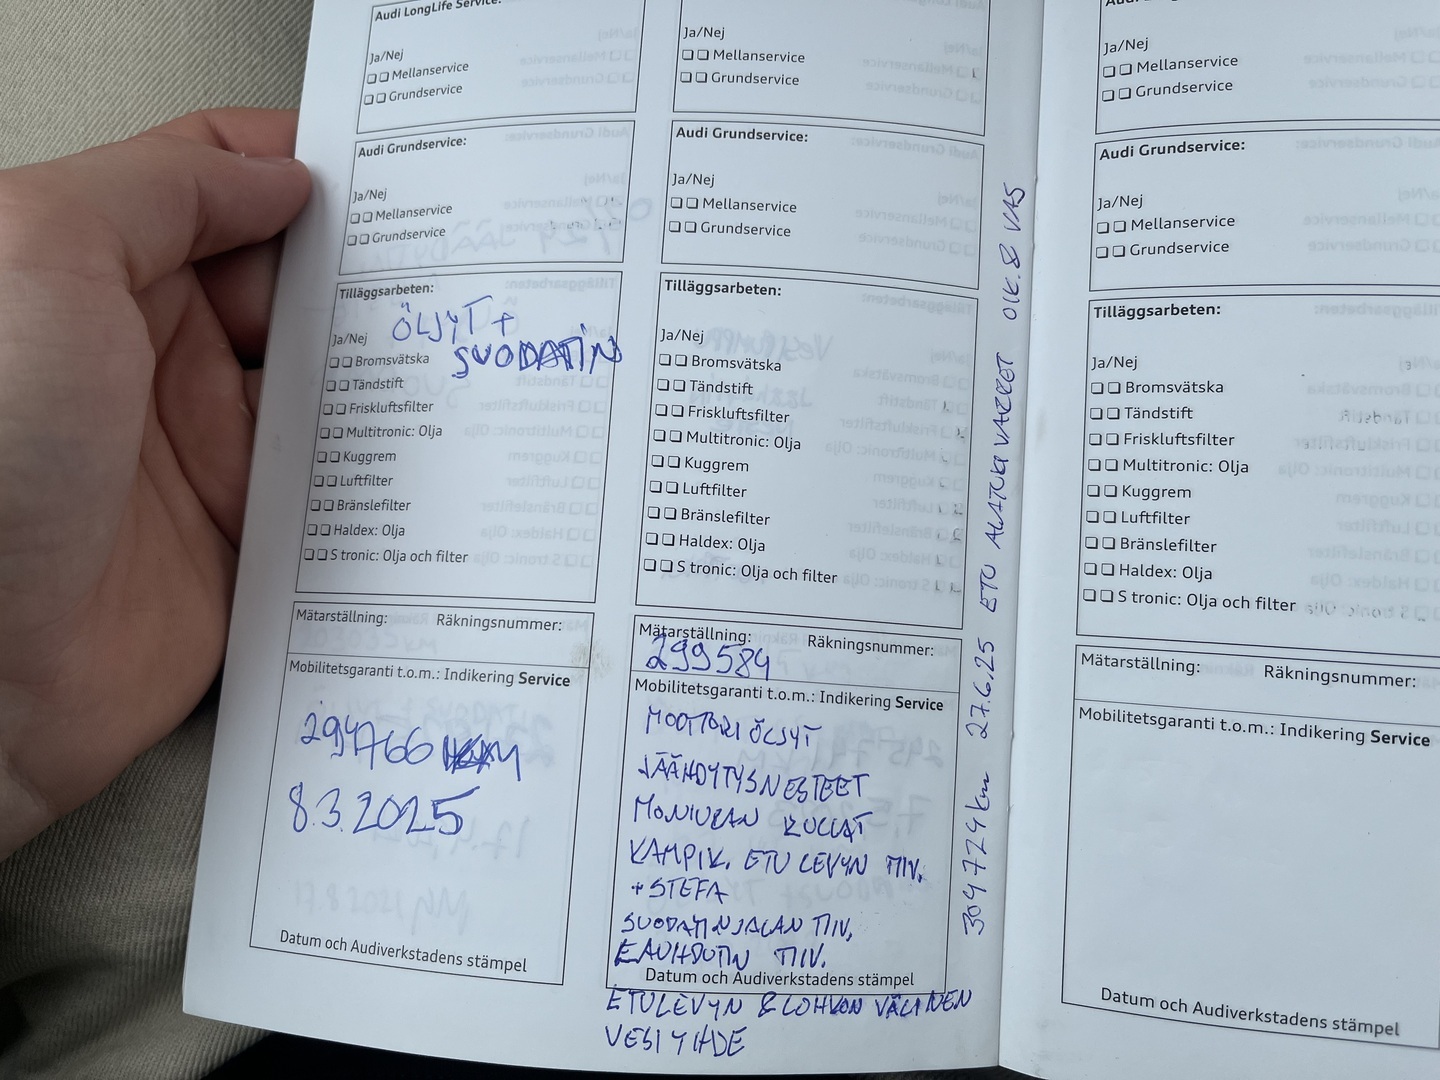 Audi LongLife Service:
Ja/Nej
Mellanservice
Grundservice
Audi Grundservice:
Ja/Nej
Mellanservice
Grundservice
Tilläggsarbeten:
ÖLJYT +
SUODATIN
Ja/Nej
Bromsvätska
Tändstift
Friskluftsfilter
Multitronic: Olja
Kuggrem
Luftfilter
Bränslefilter
Haldex: Olja
S tronic: Olja och filter
Mätarställning: Räkningsnummer:
Mobilitetsgaranti t.o.m.: Indikering Service
294766
8.3.2025
Datum och Audiverkstadens stämpel
Ja/Nej
Mellanservice
Grundservice
Audi Grundservice:
Ja/Nej
Mellanservice
Grundservice
Tilläggsarbeten:
Ja/Nej
Bromsvätska
Tändstift
Friskluftsfilter
Multitronic: Olja
Kuggrem
Luftfilter
Bränslefilter
Haldex: Olja
S tronic: Olja och filter
Mätarställning: Räkningsnummer:
299584
Mobilitetsgaranti t.o.m.: Indikering Service
MOOTTORI ÖLJYT
JÄÄHDYTYSNESTEET
MONIURAN RULLAT
KAMPIK. ETULEVYN TIIV.
+ STEFA
SUODATINJALAN TIIV.
LAUHDUTIN TIIV.
Datum och Audiverkstadens stämpel
ETULEVYN & LOHKON VÄLINEN
VESIYHDE
304724km 27.6.25 ETU ALATUKIVARRET OIK. & VAS
Ja/Nej
Mellanservice
Grundservice
Audi Grundservice:
Ja/Nej
Mellanservice
Grundservice
Tilläggsarbeten:
Ja/Nej
Bromsvätska
Tändstift
Friskluftsfilter
Multitronic: Olja
Kuggrem
Luftfilter
Bränslefilter
Haldex: Olja
S tronic: Olja och filter
Mätarställning: Räkningsnummer:
Mobilitetsgaranti t.o.m.: Indikering Service
Datum och Audiverkstadens stämpel